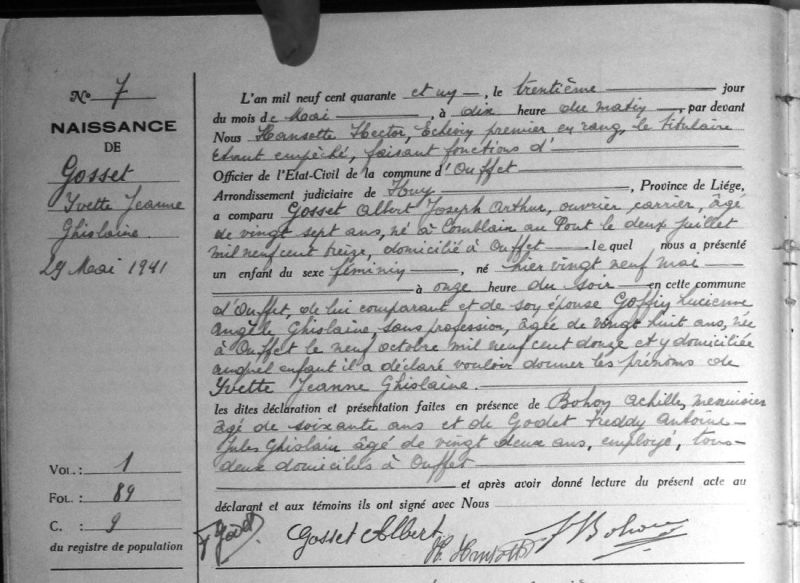 No 7
NAISSANCE
DE
Gosset
Yvette Jeanne
Ghislaine.
29 Mai 1941
Vol. : 1
Fol. : 89
C. : 9
du registre de population
L'an mil neuf cent quarante et un, le trentième jour
du mois de Mai, à dix heure du matin, par devant
Nous Hansotte Hector, Echevin premier en rang, le titulaire
étant empêché, faisant fonctions d'
Officier de l'Etat-Civil de la commune d'Ouffet
Arrondissement judiciaire de Huy, Province de Liége,
a comparu Gosset Albert Joseph Arthur, ouvrier carrier, âgé
de vingt sept ans, né à Comblain au Pont le deux juillet
mil neuf cent treize, domicilié à Ouffet lequel nous a présenté
un enfant du sexe féminin, né hier vingt neuf mai
à onze heure du soir en cette commune
d'Ouffet, de lui comparant et de son épouse Goffin Lucienne
Angèle Ghislaine, sans profession, âgée de vingt huit ans, née
à Ouffet le neuf octobre mil neuf cent douze et y domiciliée
auquel enfant il a déclaré vouloir donner les prénoms de
Yvette Jeanne Ghislaine.
les dites déclaration et présentation faites en présence de Bohon Achille, menuisier
âgé de soixante ans et de Godet Freddy Antoine
Jules Ghislain âgé de vingt deux ans, employé, tous
deux domiciliés à Ouffet
et après avoir donné lecture du présent acte au
déclarant et aux témoins ils ont signé avec Nous
F Godet Gosset Albert H. Hansotte Bohon